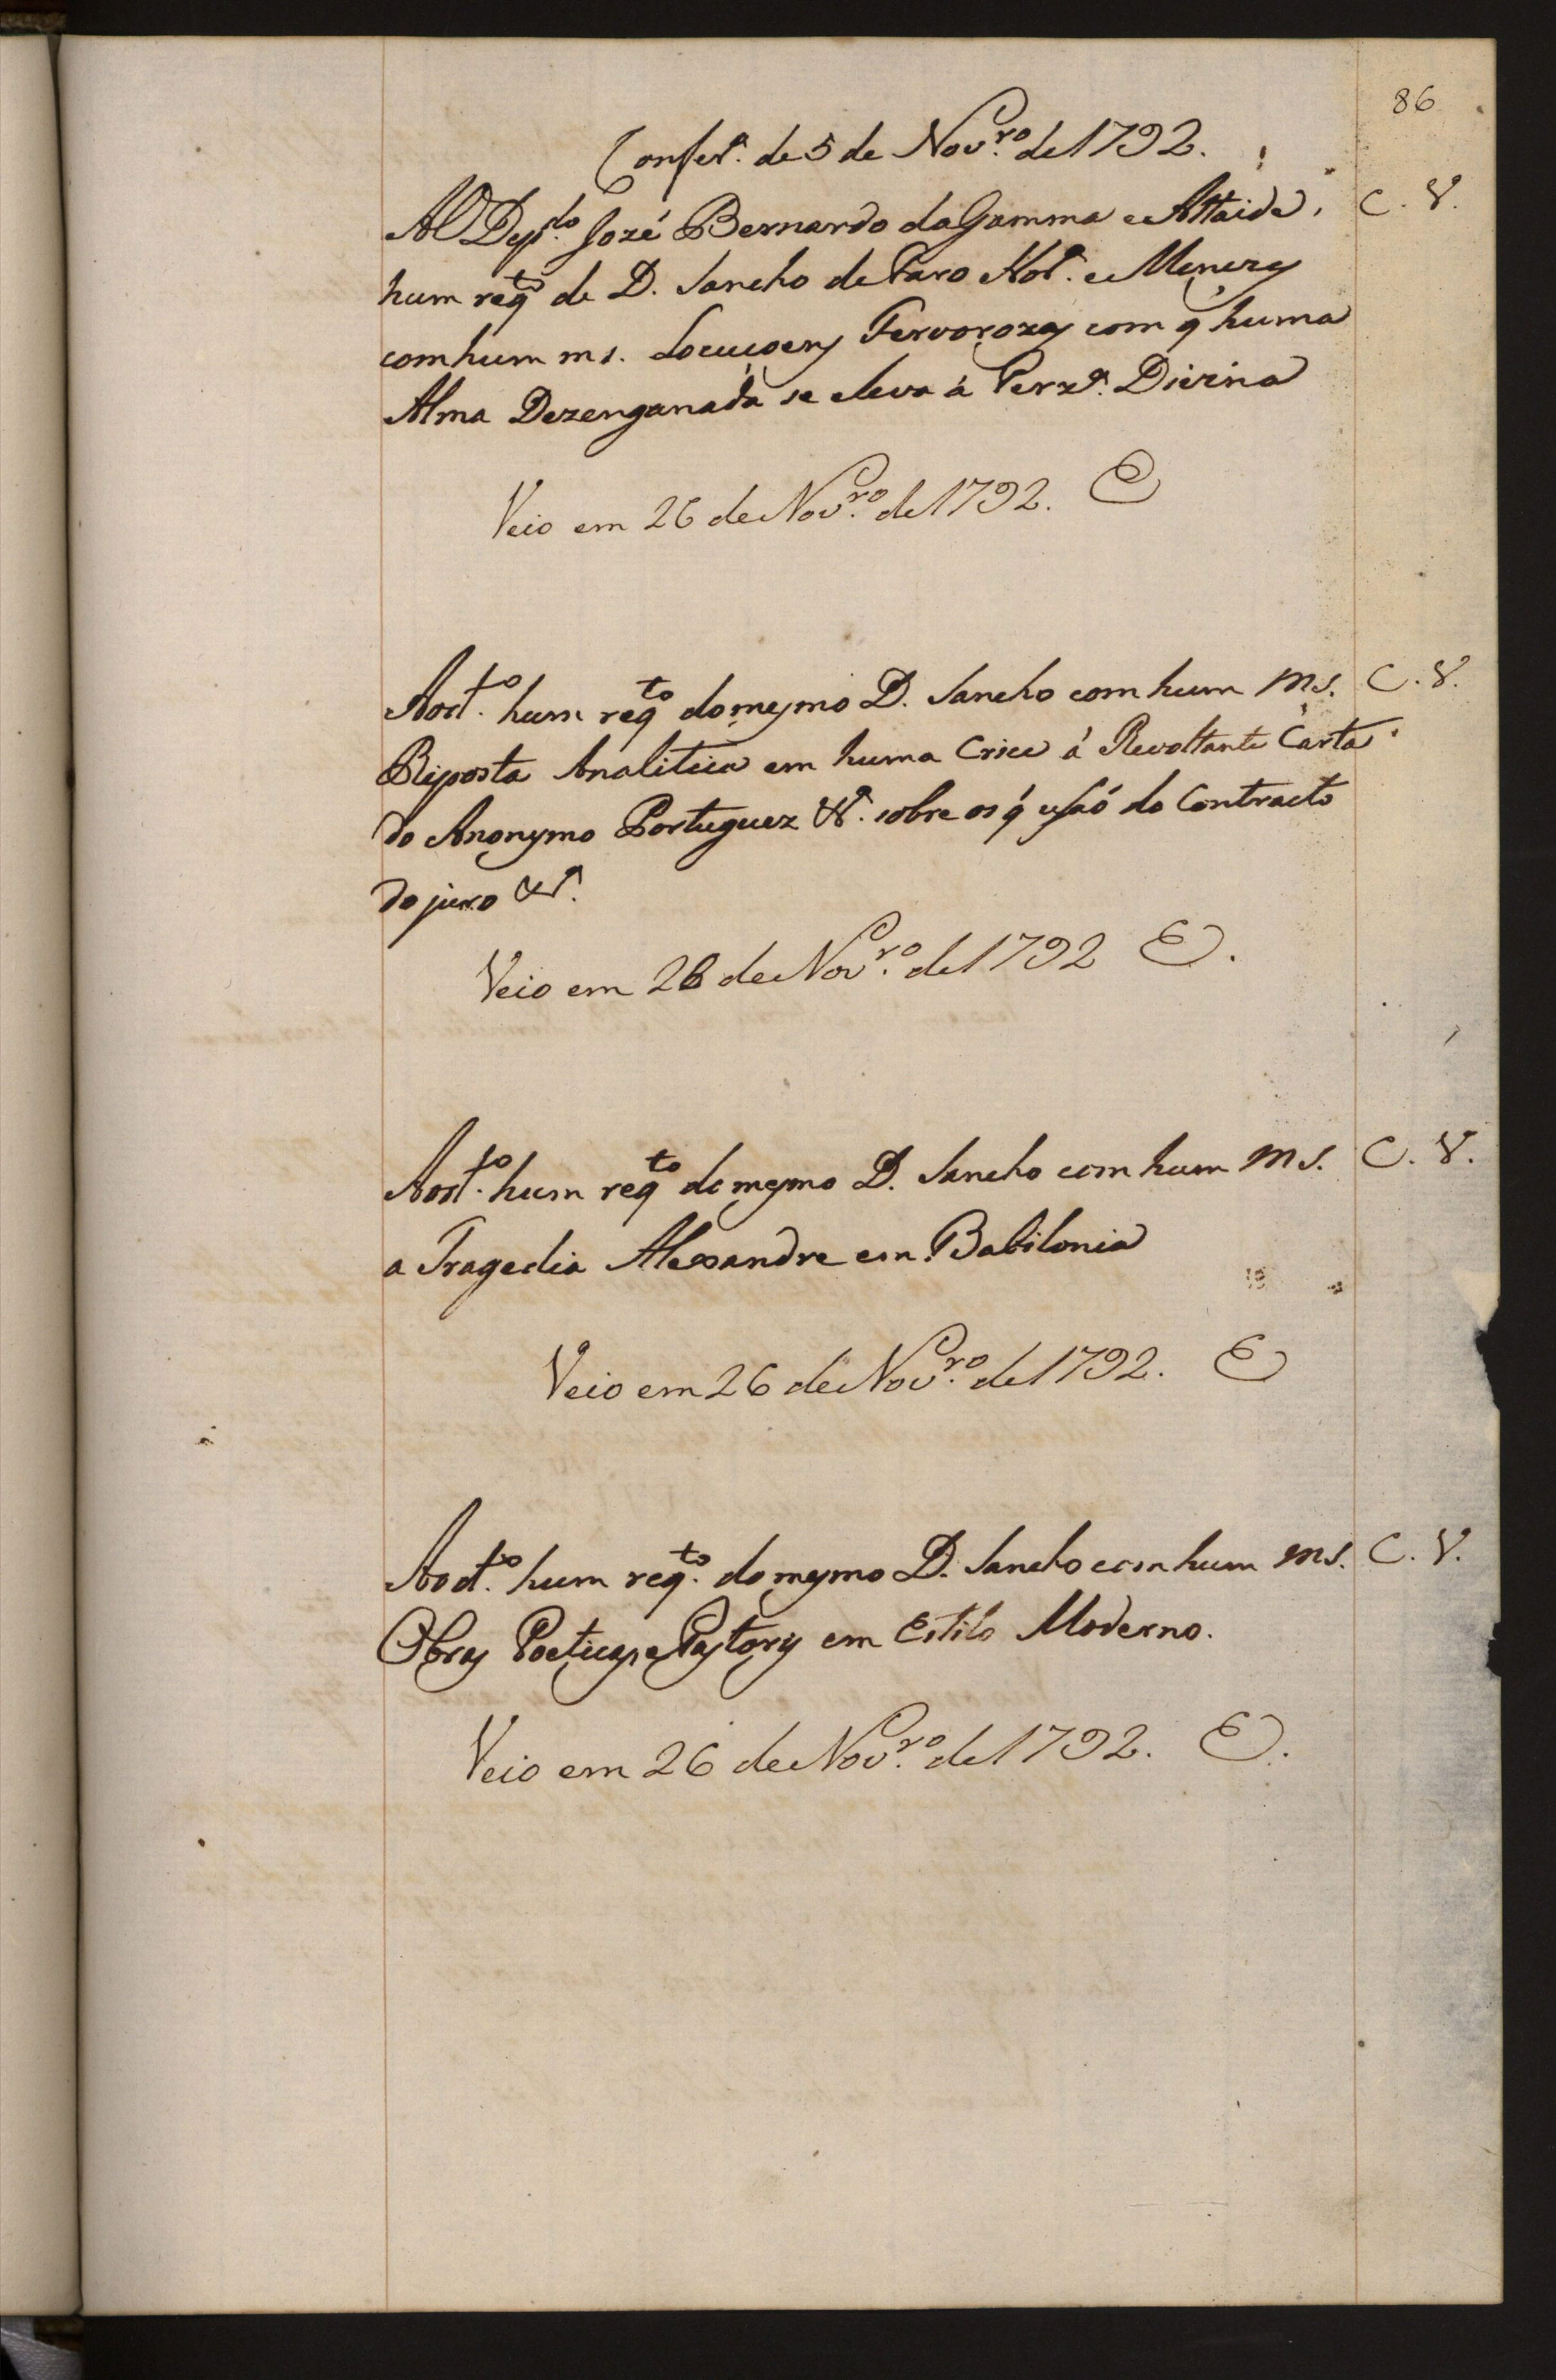 86
Confer.ª de 5 de Nov.ro de 1792.
Ao Dep.do Jozé Bernardo da Gamma e Attaide, C. V.
hum reqto de D. Sancho de Faro Not.ª e Menezes
com hum ms. Locuçoens Fervorozas com q̃ huma
Alma Dezenganada se eleva á Prez.ª Divina
Veio em 26 de Nov.ro de 1792. E
Ao d.to hum reqto do mesmo D. Sancho com hum Ms. C. V.
Resposta Analitica em huma Crise á Revoltante Carta
do Anonymo Portuguez &.ª sobre os q̃ usaó do Contracto
do juro &.ª
Veio em 26 de Nov.ro de 1792 E.
Ao d.to hum reqto do mesmo D. Sancho com hum Ms. C. V.
a Tragedia Alexandre em Babilonia
Veio em 26 de Nov.ro de 1792. E
Ao d.to hum req.to do mesmo D. Sancho com hum Ms. C. V.
Obras Poeticas, e Pastoris em Estilo Moderno.
Veio em 26 de Nov.ro de 1792. E.